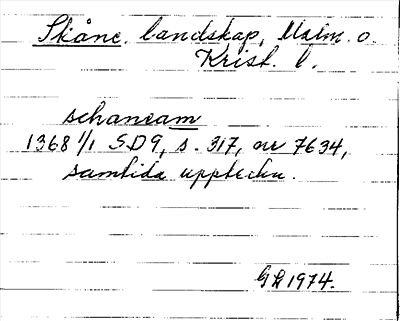 Skåne, landskap, Malm. o.
Krist. l.
schaneam
1368 1/1 SD9, s. 317, nr 7634,
samtida uppteckn.
GR 1974.